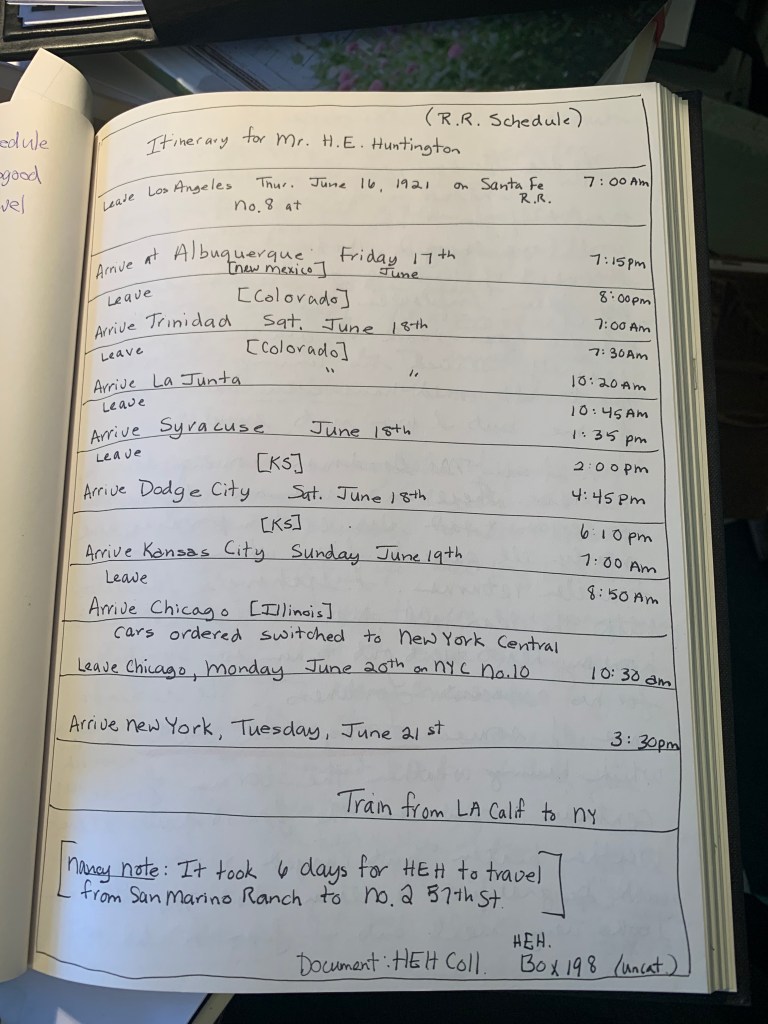 edule
good
vel
(R.R. Schedule)
Itinerary for Mr. H.E. Huntington
Leave Los Angeles Thur. June 16, 1921 on Santa Fe 7:00 Am
R.R.
no. 8 at
Arrive at Albuquerque Friday 17th 7:15 pm
[new mexico] June
Leave [Colorado] 8:00pm
Arrive Trinidad Sat. June 18th 7:00 Am
Leave [Colorado] 7:30 Am
Arrive La Junta " " 10:20 Am
Leave 10:45 Am
Arrive Syracuse June 18th 1:35 pm
Leave [KS] 2:00 pm
Arrive Dodge City Sat. June 18th 4:45 pm
[KS] 6:10 pm
Arrive Kansas City Sunday June 19th 7:00 Am
Leave 8:50 Am
Arrive Chicago [Illinois]
cars ordered switched to New York Central
Leave Chicago, Monday June 20th on NYC No.10 10:30 am
Arrive New York, Tuesday, June 21st 3:30pm
Train from LA Calif to NY
[Nancy note: It took 6 days for HEH to travel
from San Marino Ranch to no. 2 57th St.]
HEH.
Document: HEH Coll. Box 198 (uncat.)